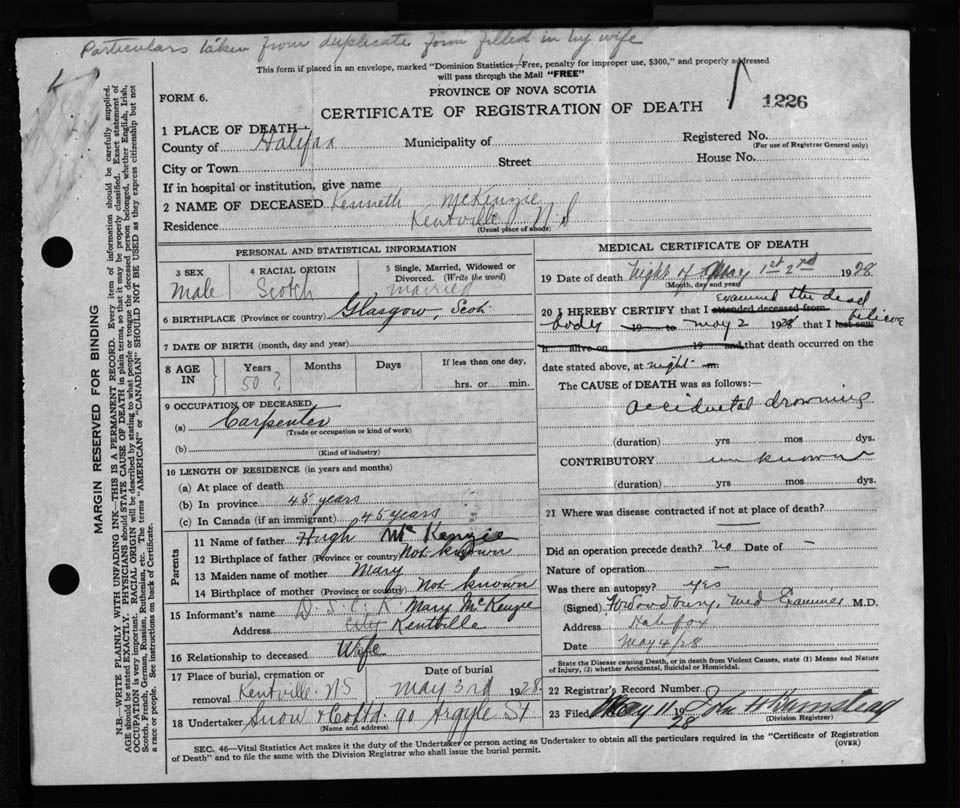 Particulars taken from duplicate form filled in by wife
This form if placed in an envelope, marked "Dominion Statistics—Free, penalty for improper use, $300," and properly addressed
will pass through the Mail "FREE"
PROVINCE OF NOVA SCOTIA
FORM 6.
CERTIFICATE OF REGISTRATION OF DEATH
1226
1 PLACE OF DEATH—
County of Halifax Municipality of Registered No.
(For use of Registrar General only)
City or Town Street House No.
If in hospital or institution, give name
2 NAME OF DECEASED Kenneth McKenzie
Residence Kentville N S
(Usual place of abode)
PERSONAL AND STATISTICAL INFORMATION
3 SEX
Male
4 RACIAL ORIGIN
Scotch
5 Single, Married, Widowed or Divorced. (Write the word)
married
6 BIRTHPLACE (Province or country) Glasgow, Scot
7 DATE OF BIRTH (month, day and year)
8 AGE IN
Years Months Days If less than one day,
50 ? hrs. or min.
9 OCCUPATION OF DECEASED
(a) Carpenter
(Trade or occupation or kind of work)
(b)
(Kind of industry)
10 LENGTH OF RESIDENCE (in years and months)
(a) At place of death
(b) In province 45 years
(c) In Canada (if an immigrant) 45 years
Parents
11 Name of father Hugh McKenzie
12 Birthplace of father (Province or country) Not known
13 Maiden name of mother Mary
14 Birthplace of mother (Province or country) Not known
15 Informant's name Mary McKenzie
Address City Kentville
16 Relationship to deceased Wife
17 Place of burial, cremation or removal Kentville NS
Date of burial
May 3rd 1928
18 Undertaker Snow & Co Ltd 90 Argyle St
(Name and address)
MEDICAL CERTIFICATE OF DEATH
19 Date of death Night of May 1st 2nd 1928
(Month, day and year)
Examined the dead
20 I HEREBY CERTIFY that I attended deceased from
body 19 to May 2 1928 that I last saw believe
h alive on 19 and that death occurred on the
date stated above, at night m.
The CAUSE of DEATH was as follows:—
Accidental drowning
(duration) yrs mos dys.
CONTRIBUTORY unknown
(duration) yrs mos dys.
21 Where was disease contracted if not at place of death?
Did an operation precede death? no Date of –
Nature of operation –
Was there an autopsy? yes
(Signed) Woodbury, Med Examiner M.D.
Address Halifax
Date May 4/28
State the Disease causing Death, or in death from Violent Causes, state (1) Means and Nature of Injury, (2) whether Accidental, Suicidal or Homicidal.
22 Registrar's Record Number
23 Filed May 11 1928 John H Barnstead
(Division Registrar)
SEC. 46—Vital Statistics Act makes it the duty of the Undertaker or person acting as Undertaker to obtain all the particulars required in the "Certificate of Registration
of Death" and to file the same with the Division Registrar who shall issue the burial permit.
(OVER)
MARGIN RESERVED FOR BINDING
N.B.—WRITE PLAINLY WITH UNFADING INK—THIS IS A PERMANENT RECORD. Every item of information should be carefully supplied.
AGE should be stated EXACTLY. PHYSICIANS should STATE CAUSE OF DEATH in plain terms, so that it may be properly classified. Exact statement of
OCCUPATION is very important. RACIAL ORIGIN will be described by stating to what people or tongue the deceased person belonged, whether English, Irish,
Scotch, French, German, Russian, Ruthenian, etc. The terms "AMERICAN" or "CANADIAN" SHOULD NOT BE USED as they express citizenship but not
a race or people. See instructions on back of Certificate.